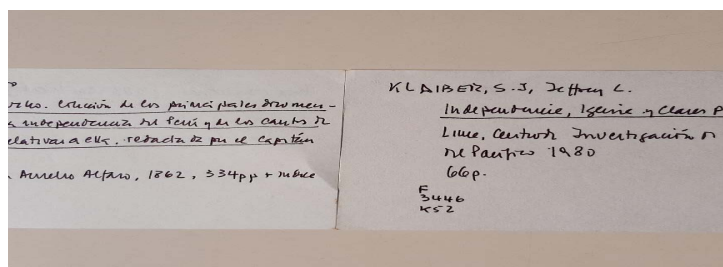 colección de los principales documen-
a independencia del Perú y de los cantos de
relativas a ella, redactada por el Capitán
Aurelio Alfaro, 1862, 334pp + índice
KLAIBER, S.J, Jeffrey L.
Independencia, Iglesia y Clases P
Lima, Centro de Investigación
del Pacífico 1980
66p.
F
3446
K52